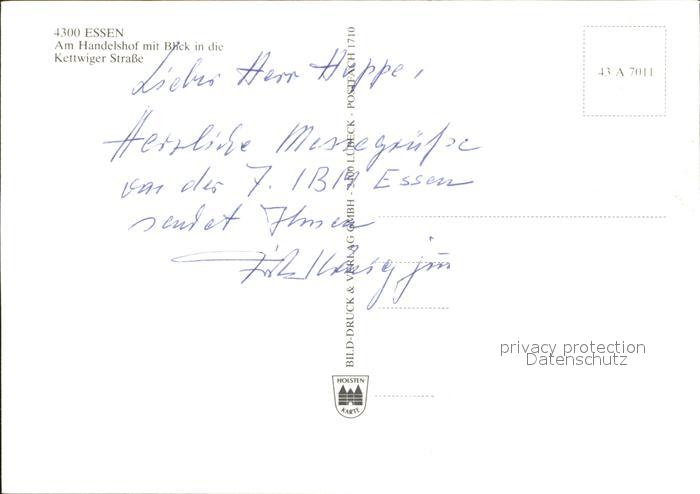 4300 ESSEN
Am Handelshof mit Blick in die
Kettwiger Straße
43 A 7011
Lieber Herr Hoppe,
Herzliche Messegrüße
von der 7. IBM Essen
sendet Ihnen
Fritz König jun
BILD-DRUCK & VERLAG GMBH - 2400 LÜBECK - POSTFACH 1710
privacy protection
Datenschutz
HOLSTEN
KARTE